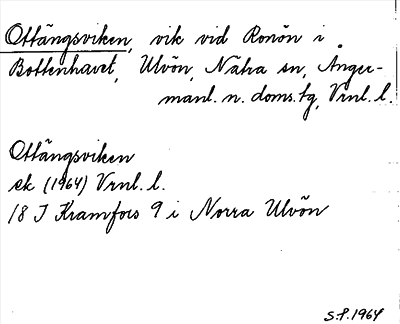 Ottängsviken, vik vid Ronön i
Bottenhavet, Ulvön, Nätra sn, Ånger-
manl. n. doms.tg, Vrnl. l.
Ottängsviken
ek (1964) Vrnl. l.
18 J Kramfors 9 i Norra Ulvön
S.P. 1964